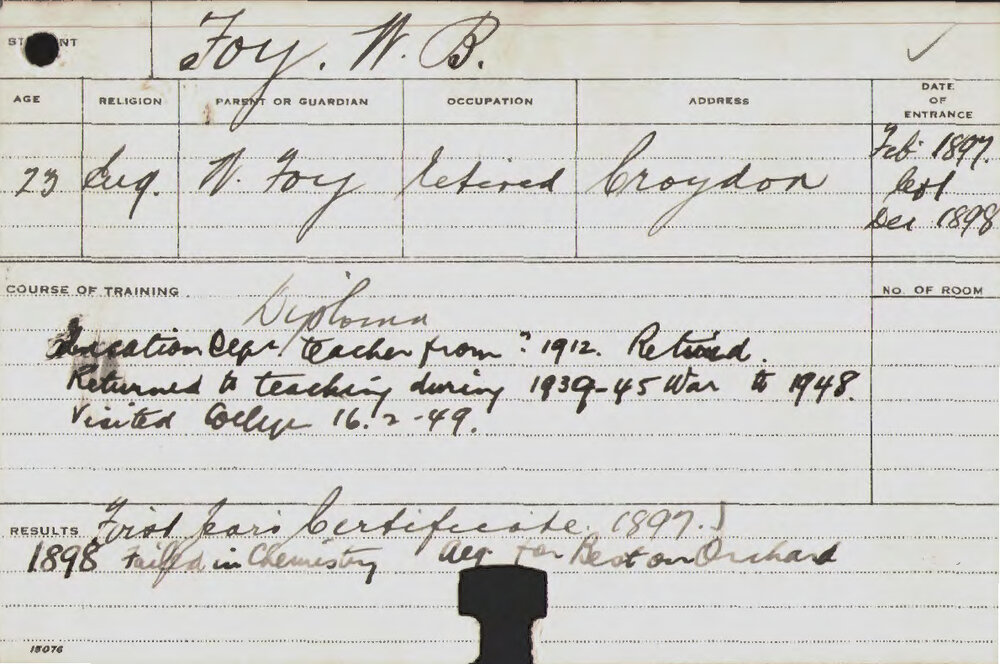 STUDENT Foy. W. B.
AGE RELIGION PARENT OR GUARDIAN OCCUPATION ADDRESS DATE OF ENTRANCE
23 Eng. W. Foy Retired Croydon Feb. 1897.
Dec 1898
COURSE OF TRAINING NO. OF ROOM
Diploma
Education Dept teacher from ? 1912. Retired.
Returned to teaching during 1939-45 War to 1948.
Visited College 16.2-49.
RESULTS First Year's Certificate. 1897.
1898 Failed in Chemistry for Best on Orchard
15076